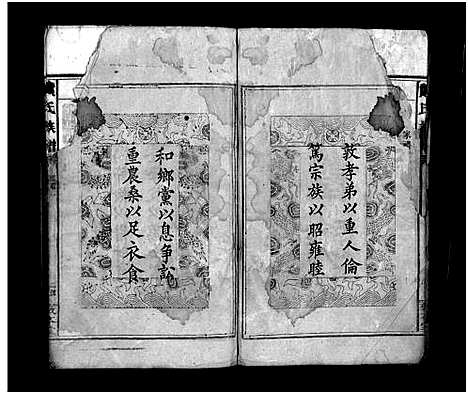 敦孝弟以重人倫
篤宗族以昭雍睦
和鄉黨以息争訟
重農桑以足衣食